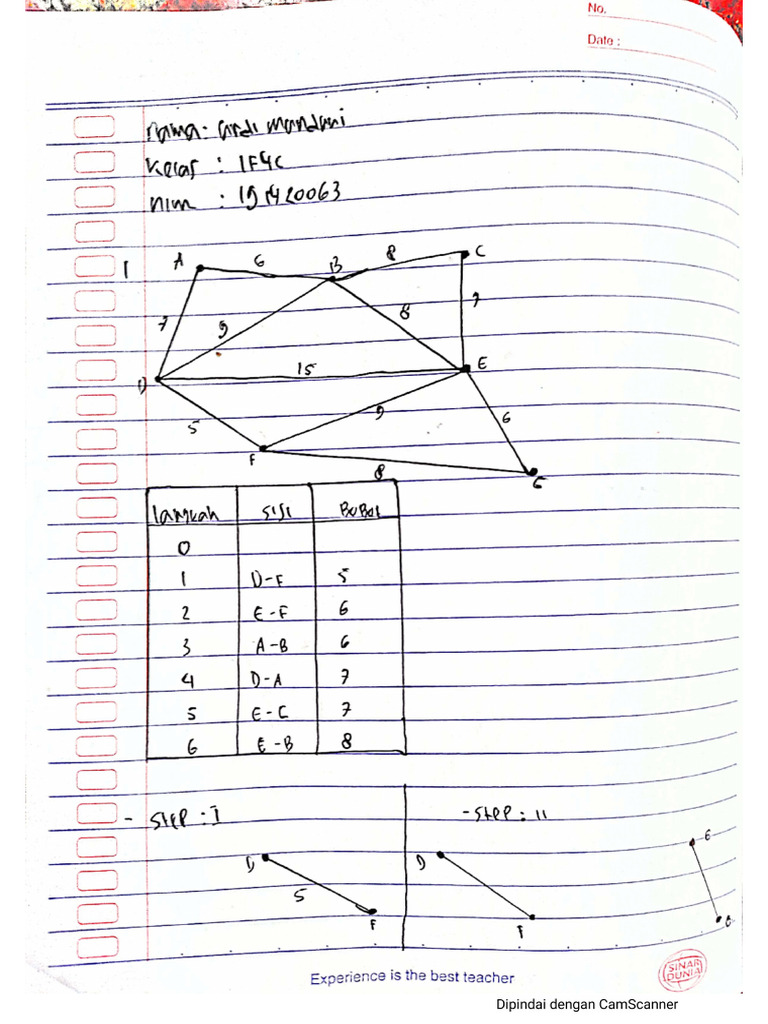 No.
Date :
nama : ardi mandani
Kelas : IF4C
nim : 191420063
1 A 6 B 8 C
7 9 8 7
D 15 E
5 9 6
F 8 G
langkah SISI BOBOT
0
1 D-F 5
2 E-F 6
3 A-B 6
4 D-A 7
5 E-C 7
6 E-B 8
- Step : I - Step : II
D 5 F D F E G
Experience is the best teacher
SINAR DUNIA
Dipindai dengan CamScanner